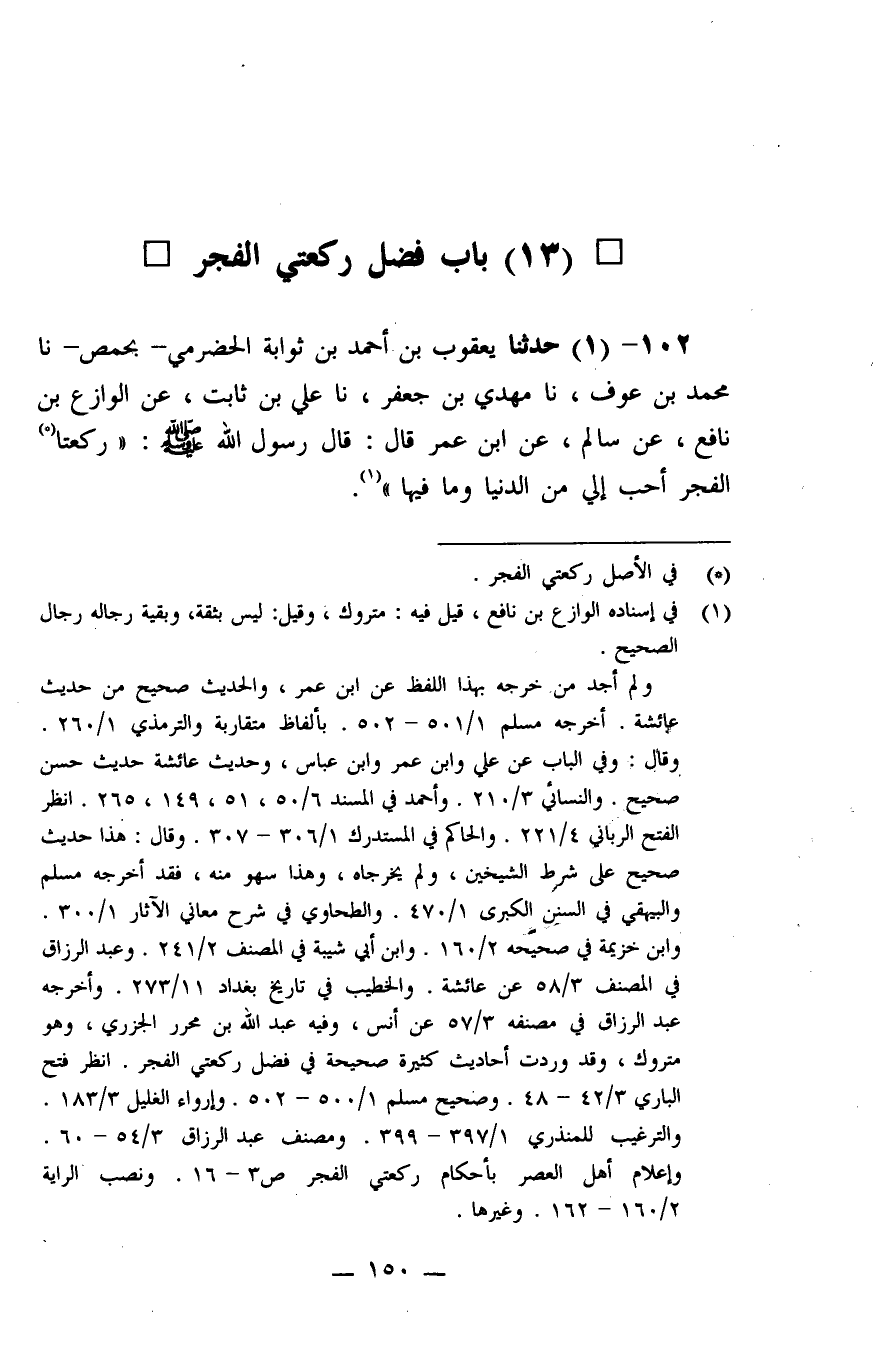 □ (١٣) باب فضل ركعتي الفجر □
١٠٢- (١) حدثنا يعقوب بن أحمد بن ثوابة الحضرمي– بحمص– نا
محمد بن عوف ، نا مهدي بن جعفر ، نا علي بن ثابت ، عن الوازع بن
نافع ، عن سالم ، عن ابن عمر قال : قال رسول الله ﷺ : « ركعتا(*)
الفجر أحب إلي من الدنيا وما فيها »(١).
(*) في الأصل ركعتي الفجر .
(١) في إسناده الوازع بن نافع ، قيل فيه : متروك ، وقيل: ليس بثقة، وبقية رجاله رجال
الصحيح .
ولم أجد من خرجه بهذا اللفظ عن ابن عمر ، والحديث صحيح من حديث
عائشة . أخرجه مسلم ٥٠١/١ – ٥٠٢ . بألفاظ متقاربة والترمذي ٢٦٠/١ .
وقال : وفي الباب عن علي وابن عمر وابن عباس ، وحديث عائشة حديث حسن
صحيح . والنسائي ٢١٠/٣ . وأحمد في المسند ٥٠/٦ ، ٥١ ، ١٤٩ ، ٢٦٥ . انظر
الفتح الرباني ٢٢١/٤ . والحاكم في المستدرك ٣٠٦/١ – ٣٠٧ . وقال : هذا حديث
صحيح على شرط الشيخين ، ولم يخرجاه ، وهذا سهو منه ، فقد أخرجه مسلم
والبيهقي في السنن الكبرى ٤٧٠/١ . والطحاوي في شرح معاني الآثار ٣٠٠/١ .
وابن خزيمة في صحيحه ١٦٠/٢ . وابن أبي شيبة في المصنف ٢٤١/٢ . وعبد الرزاق
في المصنف ٥٨/٣ عن عائشة . والخطيب في تاريخ بغداد ٢٧٣/١١ . وأخرجه
عبد الرزاق في مصنفه ٥٧/٣ عن أنس ، وفيه عبد الله بن محرر الجزري ، وهو
متروك ، وقد وردت أحاديث كثيرة صحيحة في فضل ركعتي الفجر . انظر فتح
الباري ٤٢/٣ – ٤٨ . وصحيح مسلم ٥٠٠/١ – ٥٠٢ . وإرواء الغليل ١٨٣/٣ .
والترغيب للمنذري ٣٩٧/١ – ٣٩٩ . ومصنف عبد الرزاق ٥٤/٣ – ٦٠ .
وإعلام أهل العصر بأحكام ركعتي الفجر ص٣ – ١٦ . ونصب الراية
١٦٠/٢ – ١٦٢ . وغيرها .
— ١٥٠ —